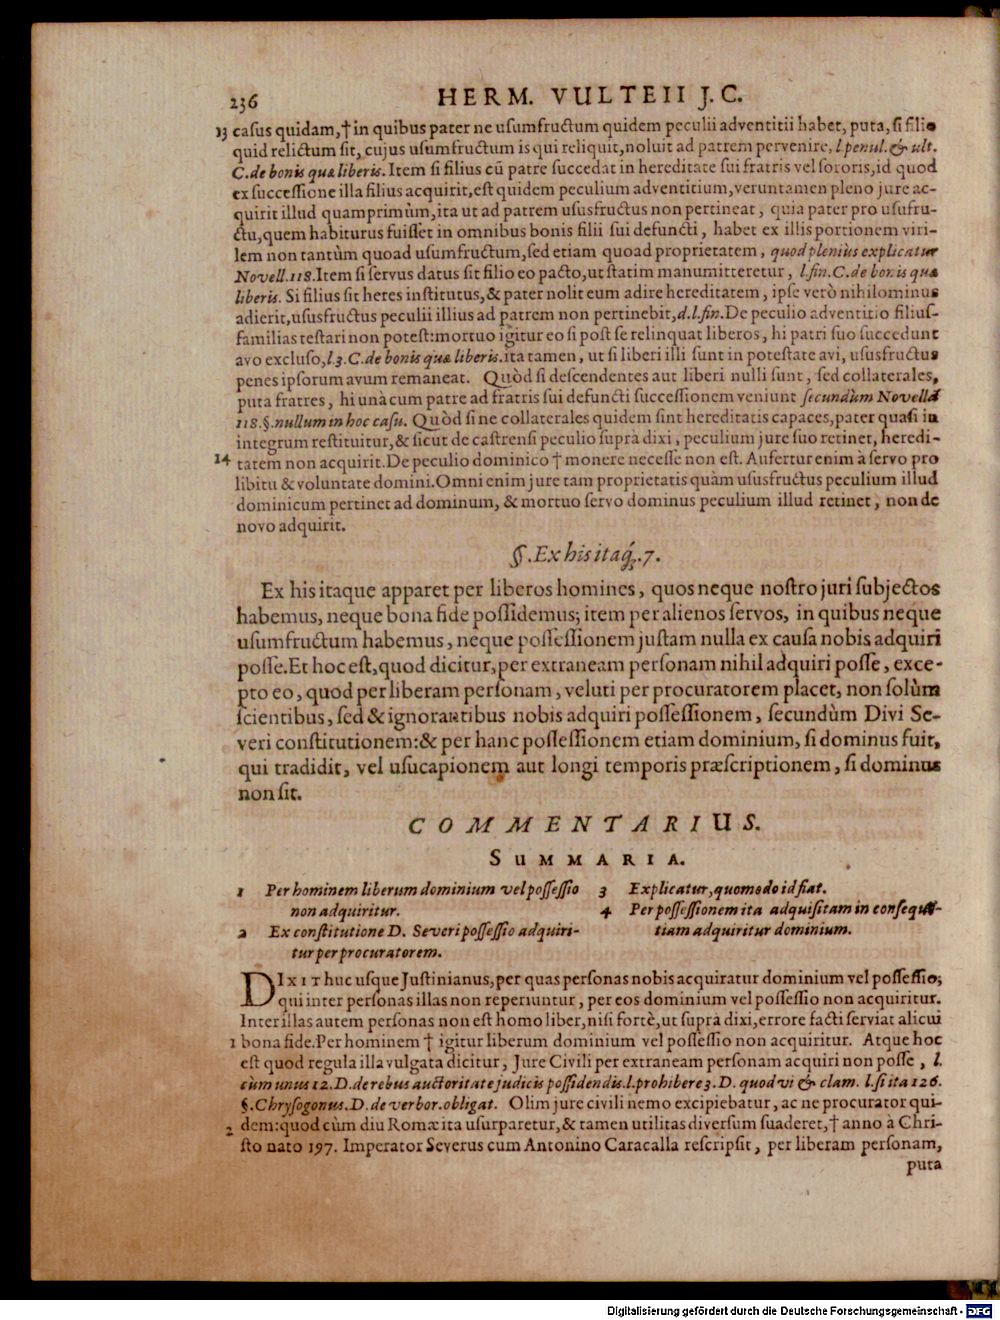 236 HERM. VULTEII J.C.
13 casus quidam, † in quibus pater ne usumfructum quidem peculii adventitii habet, puta, si filio
quid relictum sit, cujus usumfructum is qui reliquit, noluit ad patrem pervenire, l.penul. & ult.
C. de bonis quæ liberis. Item si filius cū patre succedat in hereditate sui fratris vel sororis, id quod
ex successione illa filius acquirit, est quidem peculium adventitium, veruntamen pleno jure ac-
quirit illud quamprimùm, ita ut ad patrem ususfructus non pertineat, quia pater pro usufru-
ctu, quem habiturus fuisset in omnibus bonis filii sui defuncti, habet ex illis portionem viri-
lem non tantùm quoad usumfructum, sed etiam quoad proprietatem, quod pleniùs explicatur
Novell. 118. Item si servus datus sit filio eo pacto, ut statim manumitteretur, l.fin. C. de bonis quæ
liberis. Si filius sit heres institutus, & pater nolit eum adire hereditatem, ipse verò nihilominus
adierit, ususfructus peculii illius ad patrem non pertinebit, d.l.fin. De peculio adventitio filius-
familias testari non potest: mortuo igitur eo si post se relinquat liberos, hi patri suo succedunt
avo excluso, l.3. C. de bonis quæ liberis. ita tamen, ut si liberi illi sunt in potestate avi, ususfructus
penes ipsorum avum remaneat. Quòd si descendentes aut liberi nulli sunt, sed collaterales,
puta fratres, hi unà cum patre ad fratris sui defuncti successionem veniunt secundùm Novellā
118. §. nullum in hoc casu. Quòd si ne collaterales quidem sint hereditatis capaces, pater quasi in
integrum restituitur, & sicut de castrensi peculio suprà dixi, peculium jure suo retinet, heredi-
14 tatem non acquirit. De peculio dominico † monere necesse non est. Aufertur enim à servo pro
libitu & voluntate domini. Omni enim jure tam proprietatis quàm ususfructus peculium illud
dominicum pertinet ad dominum, & mortuo servo dominus peculium illud retinet, non de
novo adquirit.
§. Ex his itaq́;. 7.
Ex his itaque apparet per liberos homines, quos neque nostro juri subjectos
habemus, neque bona fide possidemus; item per alienos servos, in quibus neque
usumfructum habemus, neque possessionem justam nulla ex causa nobis adquiri
posse. Et hoc est, quod dicitur, per extraneam personam nihil adquiri posse, exce-
pto eo, quod per liberam personam, veluti per procuratorem placet, non solùm
scientibus, sed & ignorantibus nobis adquiri possessionem, secundùm Divi Se-
veri constitutionem: & per hanc possessionem etiam dominium, si dominus fuit,
qui tradidit, vel usucapionem aut longi temporis præscriptionem, si dominus
non sit.
COMMENTARIUS.
SUMMARIA.
1 Per hominem liberum dominium vel possessio
non adquiritur.
2 Ex constitutione D. Severi possessio adquiri-
tur per procuratorem.
3 Explicatur, quomodo id fiat.
4 Per possessionem ita adquisitam in consequē-
tiam adquiritur dominium.
DIXIT huc usque Justinianus, per quas personas nobis acquiratur dominium vel possessio;
qui inter personas illas non reperiuntur, per eos dominium vel possessio non acquiritur.
Inter illas autem personas non est homo liber, nisi fortè, ut suprà dixi, errore facti serviat alicui
1 bona fide. Per hominem † igitur liberum dominium vel possessio non acquiritur. Atque hoc
est quod regula illa vulgata dicitur, Jure Civili per extraneam personam acquiri non posse, l.
cùm unus 12. D. de rebus auctoritate judicis possidendis. l. prohibere 3. D. quod vi & clam. l. si ita 126.
§. Chrysogonus. D. de verbor. obligat. Olim jure civili nemo excipiebatur, ac ne procurator qui-
2 dem: quod cùm diu Romæ ita usurparetur, & tamen utilitas diversum suaderet, † anno à Chri-
sto nato 197. Imperator Severus cum Antonino Caracalla rescripsit, per liberam personam,
puta
Digitalisierung gefördert durch die Deutsche Forschungsgemeinschaft - DFG